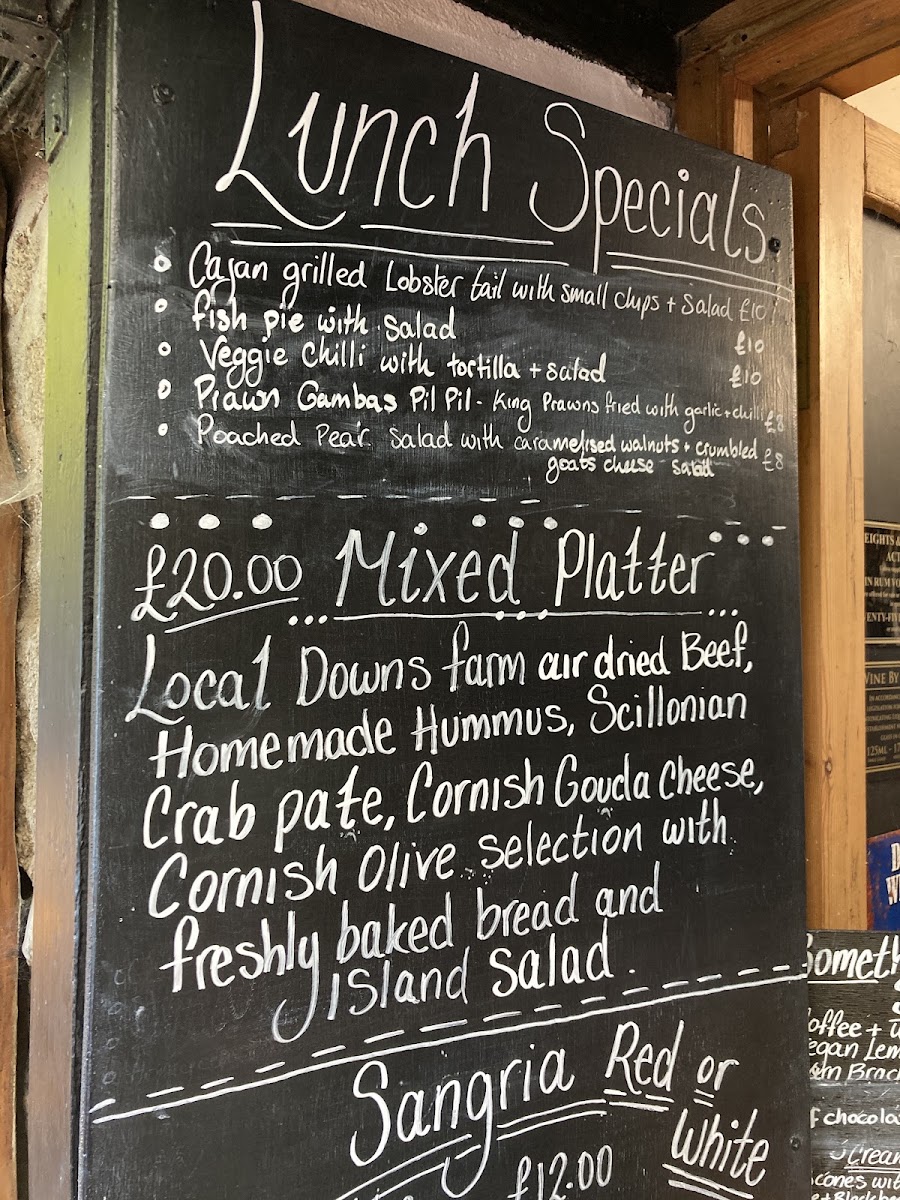 Lunch Specials
Cajan grilled Lobster tail with small chips + Salad £10
fish pie with salad £10
Veggie Chilli with tortilla + salad £10
Prawn Gambas Pil Pil - King Prawns fried with garlic + chilli £8
Poached Pear Salad with caramelised walnuts + crumbled £8
goats cheese salad
£20.00 Mixed Platter
Local Downs farm air dried Beef,
Homemade Hummus, Scillonian
Crab pate, Cornish Gouda Cheese,
Cornish Olive selection with
freshly baked bread and
Island Salad.
Sangria Red or
White
£12.00
EIGHTS &
ACT
IN RUM VO
ENTY-FIV
WINE BY
125ML - 17
Someth
offee +
egan Lem
f chocola
Crea
cones wit